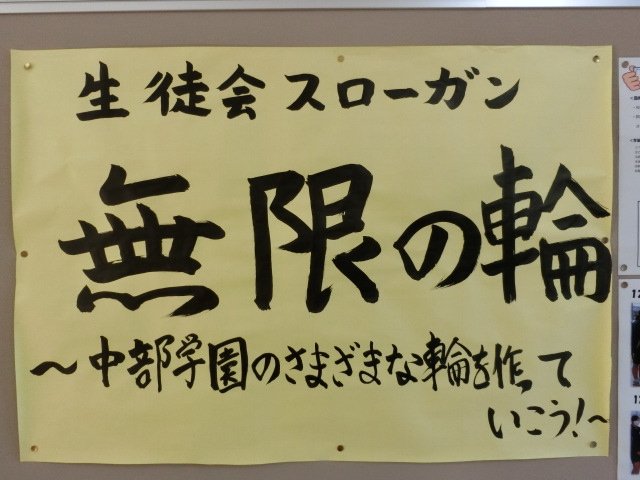 生徒会スローガン
無限の輪
～中部学園のさまざまな輪を作って
いこう!～